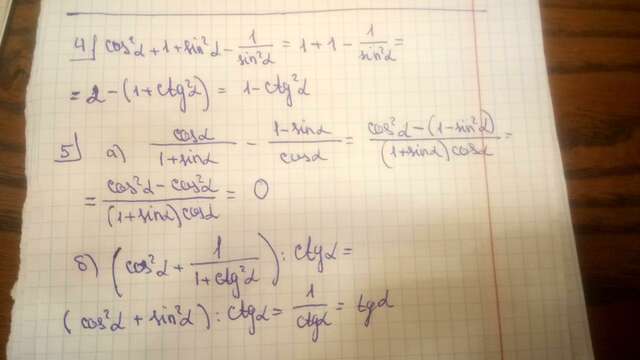 4) cos²α + 1 + sin²α - 1/sin²α = 1 + 1 - 1/sin²α =
= 2 - (1 + ctg²α) = 1 - ctg²α
5) а) cosα/(1+sinα) - (1-sinα)/cosα = (cos²α - (1-sin²α))/((1+sinα)cosα) =
= (cos²α - cos²α)/((1+sinα)cosα) = 0
б) (cos²α + 1/(1+ctg²α)) : ctgα =
(cos²α + sin²α) : ctgα = 1/ctgα = tgα